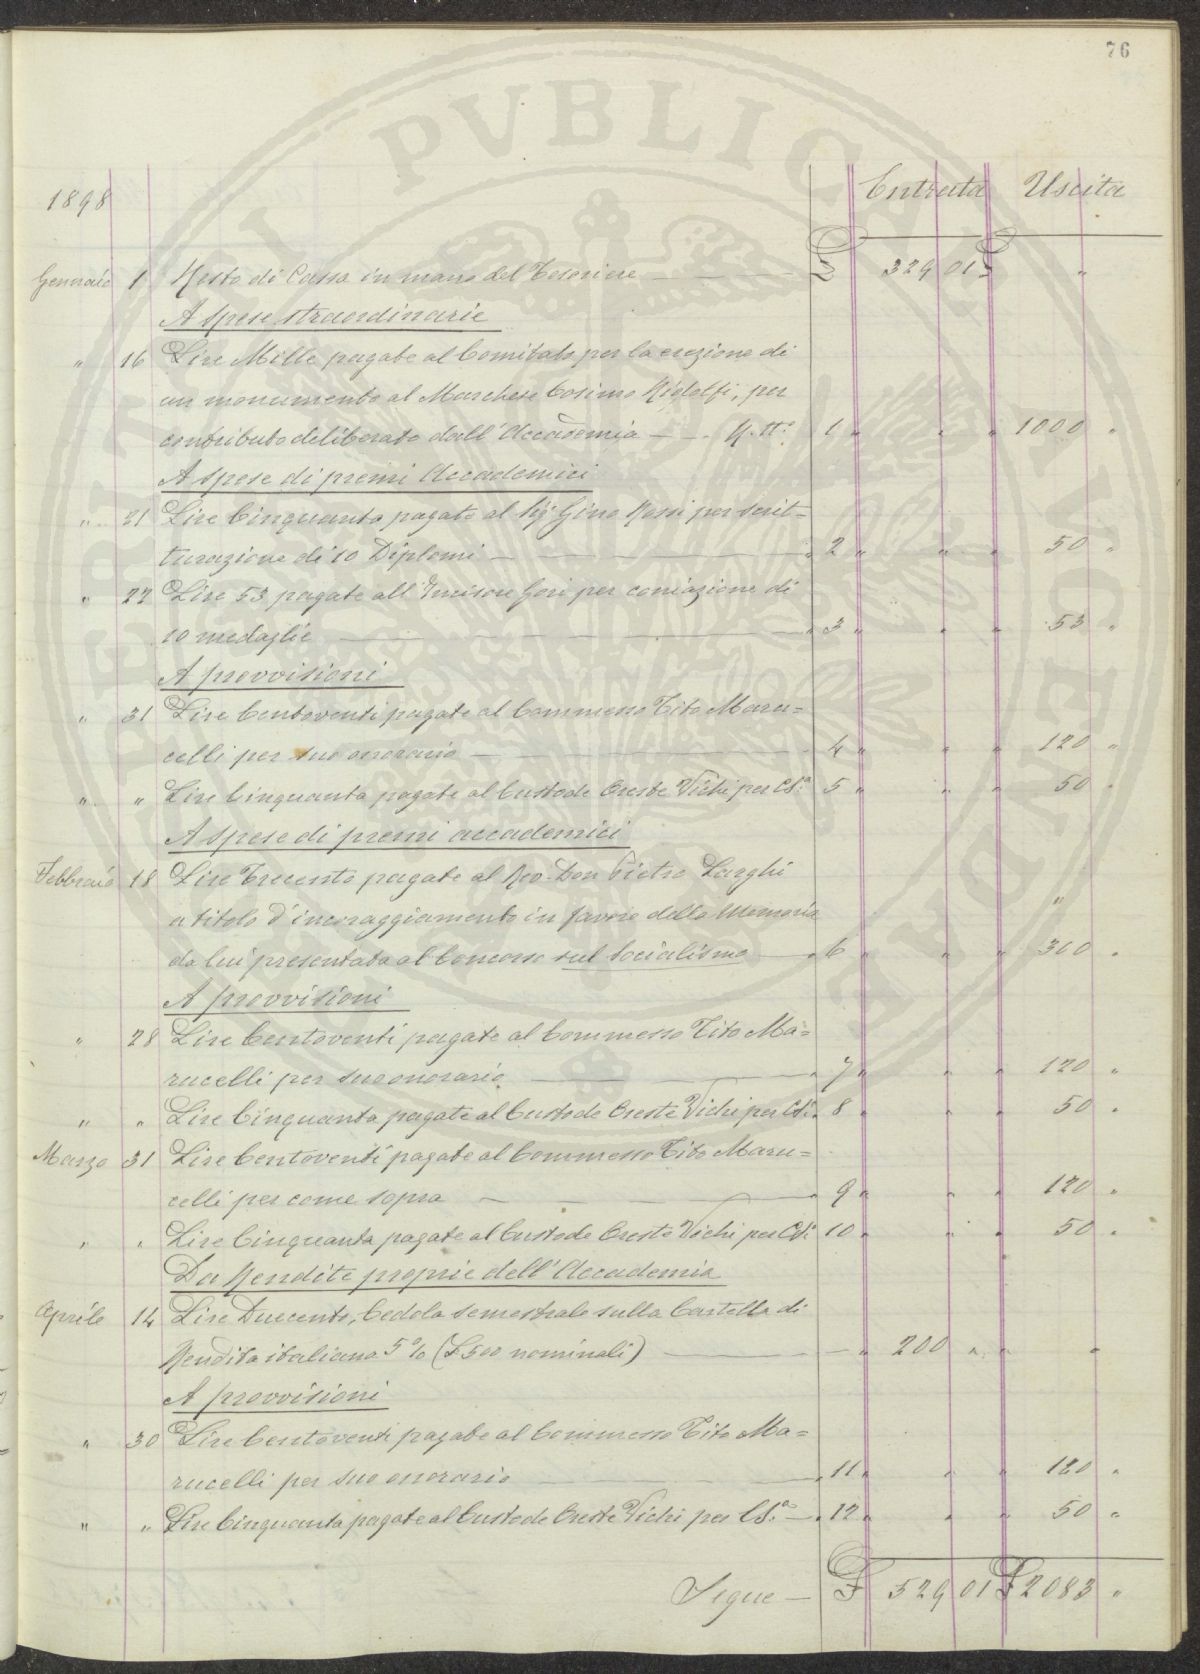 76
1898 Entrata Uscita
Gennaio 1 Resto di Cassa in mano del Tesoriere — £ 329 01 £ "
A spese straordinarie
" 16 Lire Mille pagate al Comitato per la erezione di
un monumento al Marchese Cosimo Ridolfi, per
contributo deliberato dall'Accademia — 1 " " " 1000 "
A spese di premi Accademici
" 21 Lire Cinquanta pagate al Sig. Gino Rossi per scrit-
turazione di 10 Diplomi — " 2 " " " 50 "
" 22 Lire 53 pagate all'Incisore Gori per coniazione di
10 medaglie — " 3 " " " 53 "
A provvisioni
" 31 Lire Centoventi pagate al Commesso Tito Maru=
celli per suo onorario — " 4 " " " 120 "
" " Lire Cinquanta pagate al Custode Oreste Vichi per Cs.ª 5 " " " 50 "
A spese di premi accademici
Febbraio 18 Lire Trecento pagate al Rev. Don Pietro Larghi
a titolo d'incoraggiamento in favore della Memoria "
da lui presentata al Concorso sul Socialismo — " 6 " " " 300 "
A provvisioni
" 28 Lire Centoventi pagate al Commesso Tito Ma=
rucelli per suo onorario — " 7 " " " 120 "
" " Lire Cinquanta pagate al Custode Oreste Vichi per Cs.ª 8 " " " 50 "
Marzo 31 Lire Centoventi pagate al Commesso Tito Maru=
celli per come sopra — " 9 " " " 120 "
" " Lire Cinquanta pagate al Custode Oreste Vichi per Cs.ª 10 " " " 50 "
Da Rendite proprie dell'Accademia
Aprile 14 Lire Duecento, Cedola semestrale sulla Cartella di
Rendita italiana 5% (£ 500 nominali) — " 200 " " "
A provvisioni
" 30 Lire Centoventi pagate al Commesso Tito Ma=
rucelli per suo onorario — " 11 " " " 120 "
" " Lire Cinquanta pagate al Custode Oreste Vichi per Cs.ª — " 12 " " " 50 "
Segue — £ 529 01 £ 2083 "